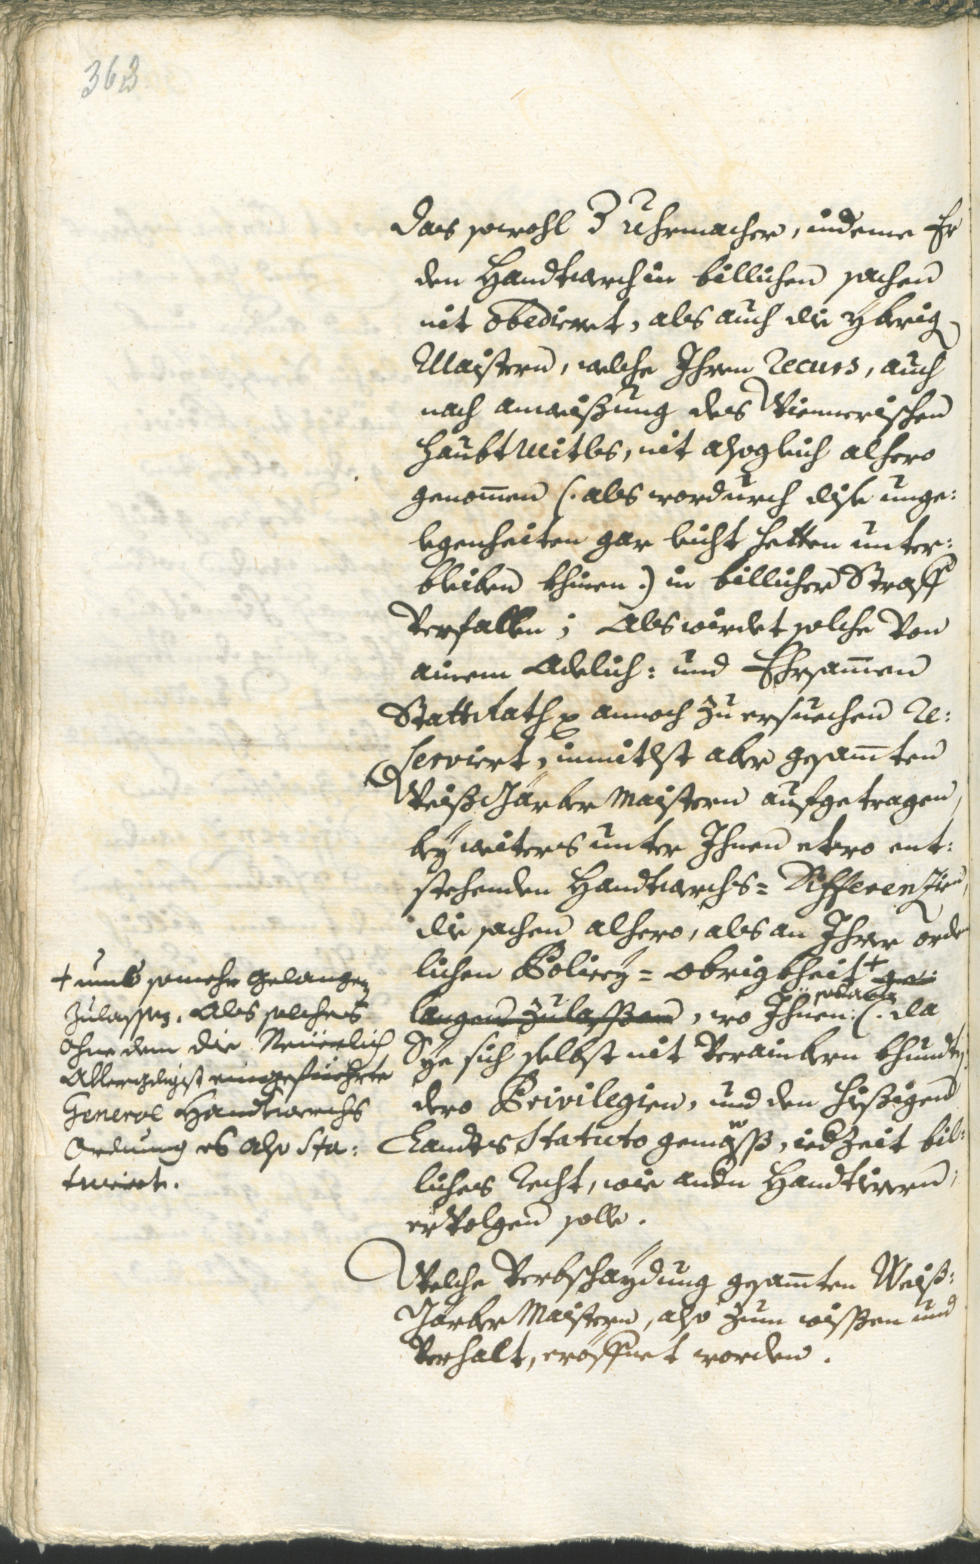 363
das sowohl Zuhrmacher, indeme Er
den Handtwerch in billichen sachen
nit obedieret, als auch die ybrig
Maistern, welche Ihren Recurs, auch
nach anweißung des Wiennerischen
Haubtmitls, nit alsogleich alhero
genom̄en (: als wordurch dise unge:
legenheiten gar leicht hetten unter:
bleiben khinen :) in billicher Straff
Verfallen; Als wirdet solche Von
ainem Adelich: und Ehrsam̄en
Statt Rath annoch zu ersuechen re:
serviert, inmitlst aber gesam̄ten
Weißgärber Maistern aufgetragen,
bey weiters unter Ihnen etwo ent:
stehenden Handtwerchs= Differenzien,
die sachen alhero, als an Ihrer orde
lichen Policey= Obrigkheit + ge:
langen zulassen, wo Ihnen sodann (: da
Sye sich selbst nit Verainbern khundten
dero Privilegien, und den hießigen
Landts Statuto gemäß, iedzeit bil:
liches Recht, wie andern Handtwerchern,
erVolgen solle.
+ umb somehr gelangen
zulassen, Als solches
ohne dem die Neuerlich
Allergdigist eingeführte
General Handtwerchs
Ordnung es also sta:
tuiert.
Welche Verbschaydung gesam̄ten Weiß:
gärber Maistern, also zum wissen und
Verhalt, eröffnet worden.